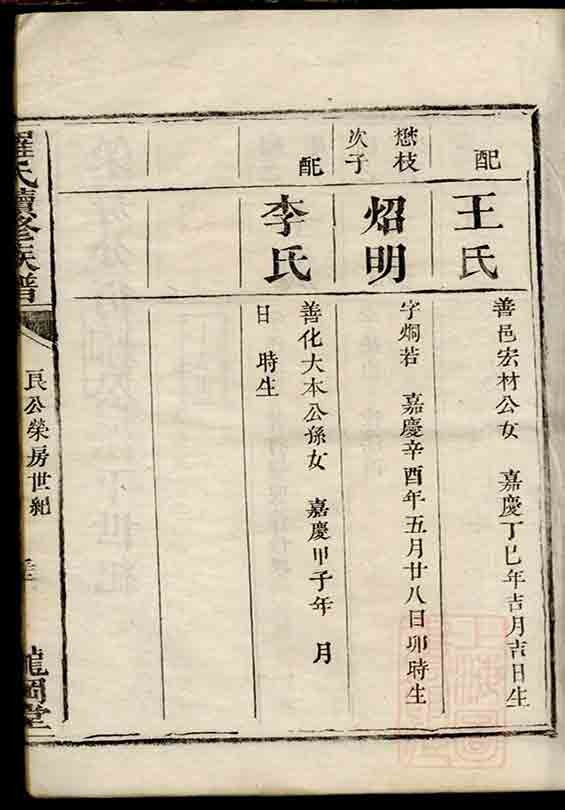 配
王氏
善邑宏材公女　嘉慶丁巳年吉月吉日生
懋枝
次子
炤明
字炯若　嘉慶辛酉年五月廿八日卯時生
配
李氏
善化大本公孫女　嘉慶甲子年　月
日　時生
羅氏續修族譜
良公榮房世紀
龍岡堂